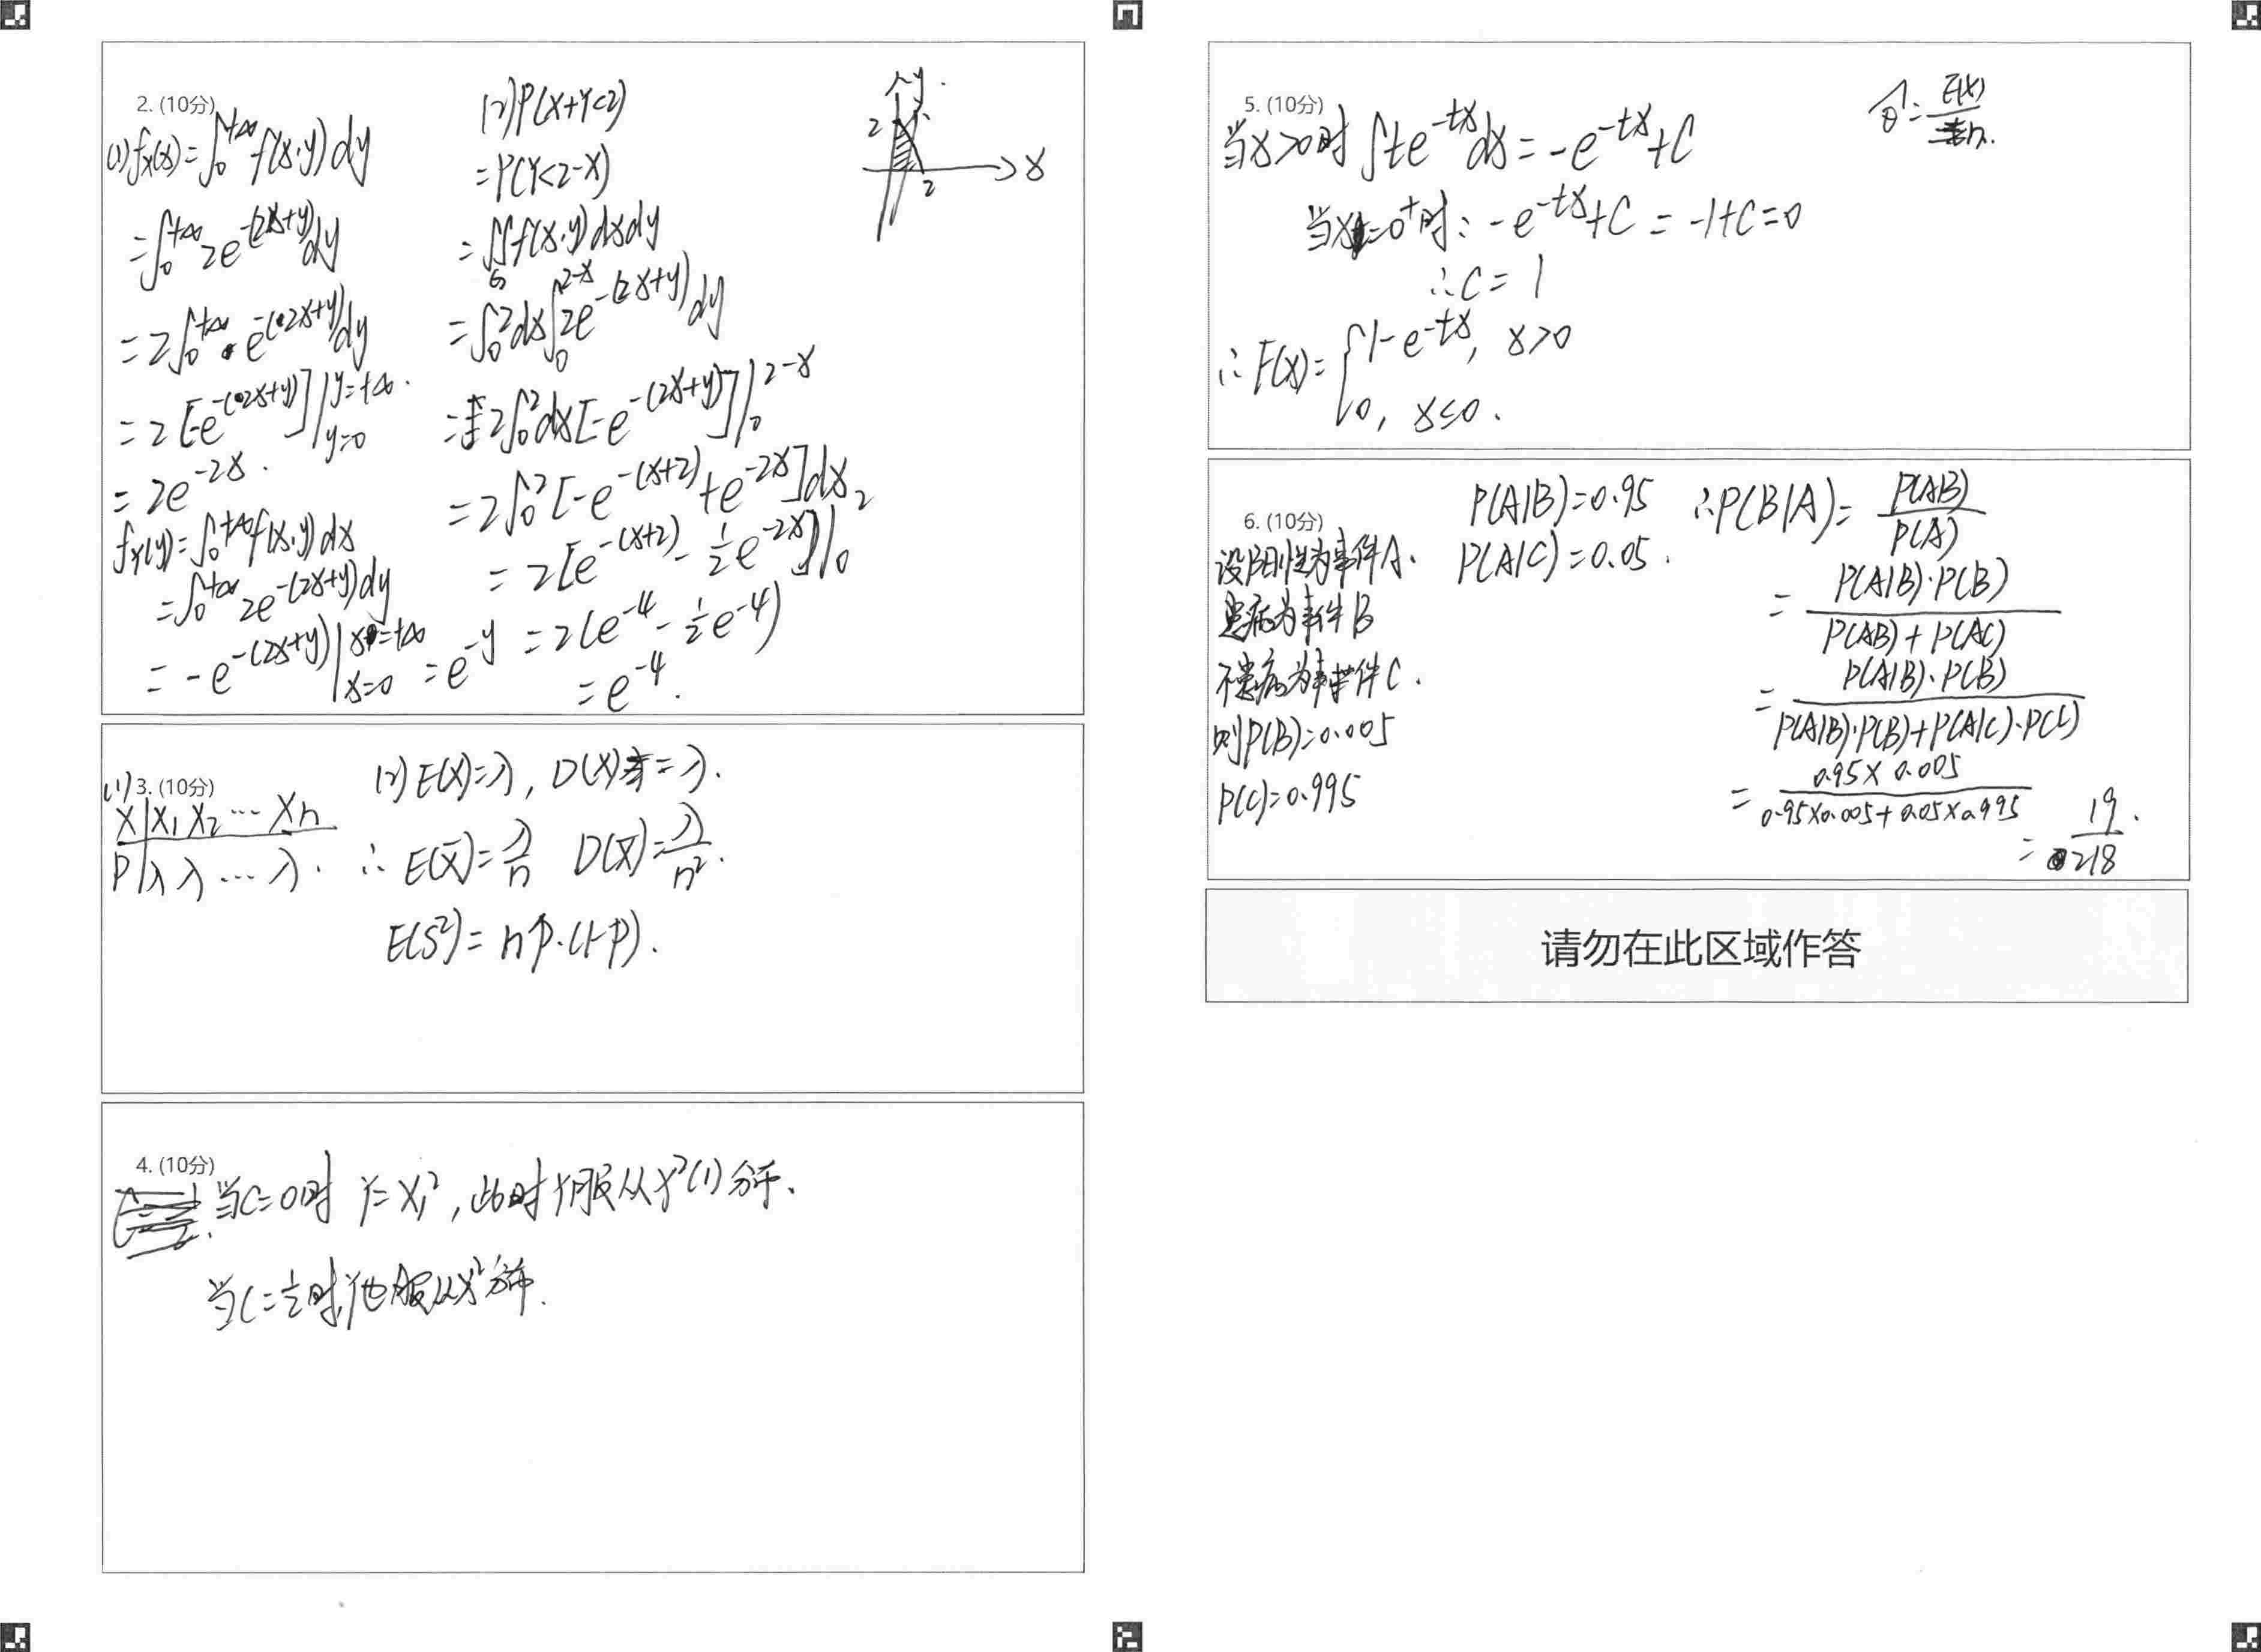 2. (10分)
(1) fx(x)=∫₀^{+∞} f(x,y)dy
=∫₀^{+∞} 2e^{-(2x+y)}dy
=2∫₀^{+∞} e^{-(2x+y)}dy
=2[-e^{-(2x+y)}]|_{y=0}^{y=+∞}.
=2e^{-2x}.
fx(y)=∫₀^{+∞} f(x,y)dx
=∫₀^{+∞} 2e^{-(2x+y)}dy
=-e^{-(2x+y)}|_{x=0}^{x=+∞}=e^{-y}
(2)P(X+Y<2)
=P(Y<2-X)
=∬_G f(x,y)dxdy
=∫₀²dx∫₀^{2-x}2e^{-(2x+y)}dy
=2∫₀²dx[-e^{-(2x+y)}]|₀^{2-x}
=2∫₀²[-e^{-(x+2)}+e^{-2x}]dx
=2[e^{-(x+2)}-½e^{-2x}]|₀²
=2(e^{-4}-½e^{-4})
=e^{-4}.
y
2
2
x
3. (10分)
(1)
X|X₁ X₂ … Xn
P|λ λ … λ.
(2) E(X)=λ, D(X)=λ.
∴E(X̄)=λ/n D(X̄)=λ/n².
E(S²)=np·(1-p).
4. (10分)
当C=0时 Y=X₁², 此时Y服从χ²(1)分布.
当C=½时,Y也服从χ²分布.
5. (10分)
当x>0时∫te^{-tx}dx=-e^{-tx}+C
当x=0⁺时:-e^{-tx}+C=-1+C=0
∴C=1
∴F(x)={1-e^{-tx}, x>0
0, x≤0.
θ̂=E(X)/n.
6. (10分)
设阳性为事件A.
患病为事件B
不患病为事件C.
则P(B)=0.005
P(C)=0.995
P(A|B)=0.95
P(A|C)=0.05.
∴P(B|A)=P(AB)/P(A)
=P(A|B)·P(B)/P(AB)+P(AC)
=P(A|B)·P(B)/P(A|B)·P(B)+P(A|C)·P(C)
=0.95×0.005/0.95×0.005+0.05×0.995
=19/218.
请勿在此区域作答